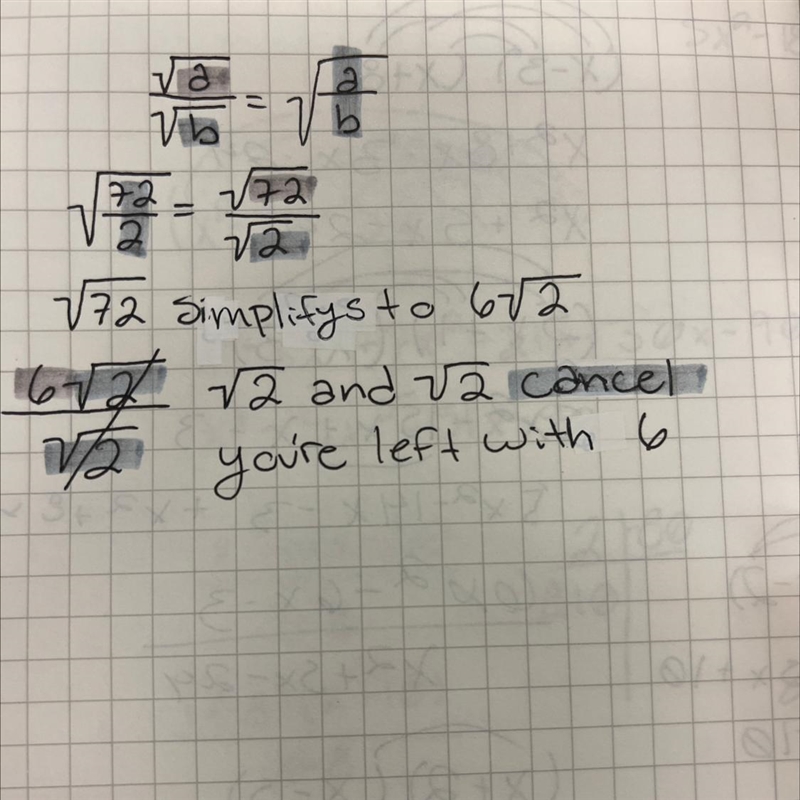 √a/√b = √(a/b)
√(72/2) = √72/√2
√72 simplifys to 6√2
6√2/√2 √2 and √2 cancel
you're left with 6